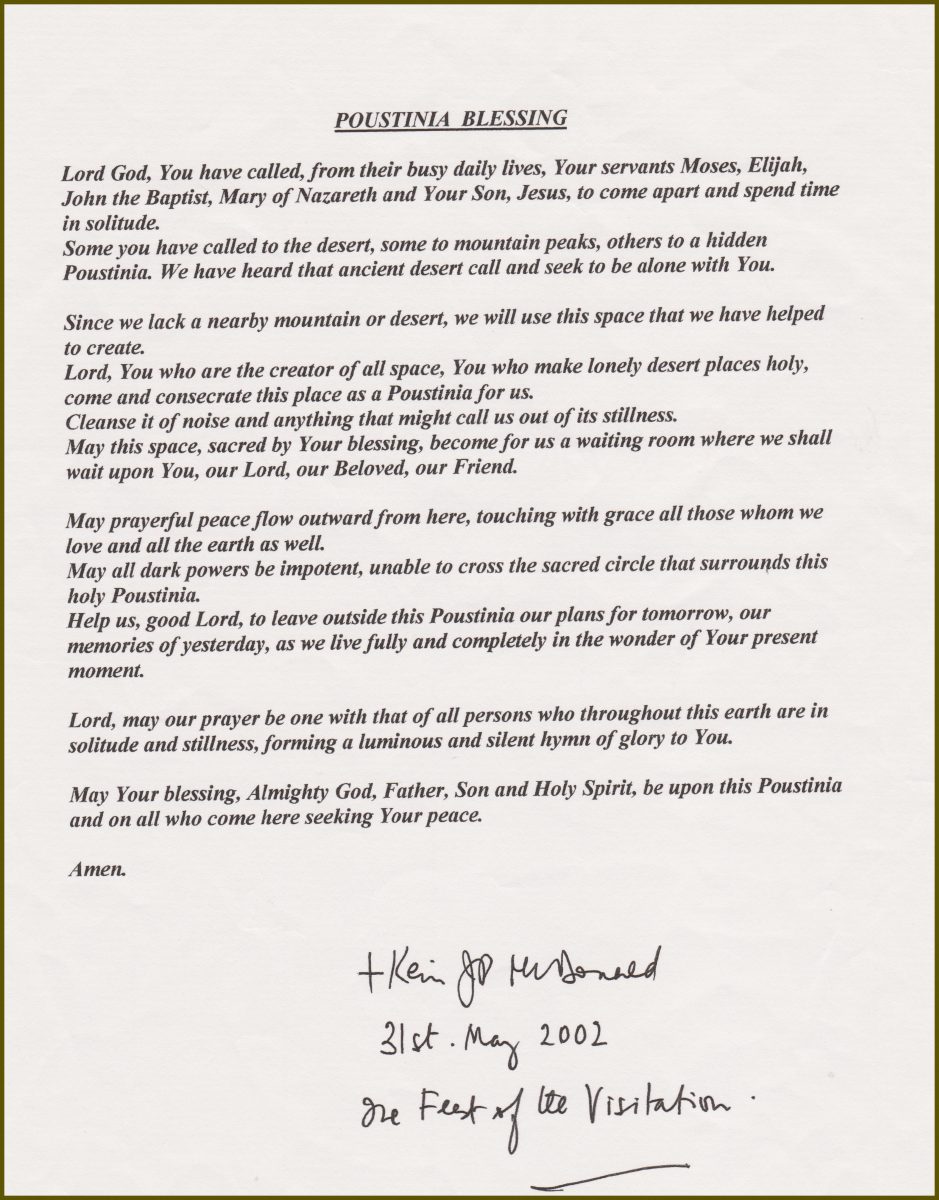 POUSTINIA BLESSING
Lord God, You have called, from their busy daily lives, Your servants Moses, Elijah,
John the Baptist, Mary of Nazareth and Your Son, Jesus, to come apart and spend time
in solitude.
Some you have called to the desert, some to mountain peaks, others to a hidden
Poustinia. We have heard that ancient desert call and seek to be alone with You.
Since we lack a nearby mountain or desert, we will use this space that we have helped
to create.
Lord, You who are the creator of all space, You who make lonely desert places holy,
come and consecrate this place as a Poustinia for us.
Cleanse it of noise and anything that might call us out of its stillness.
May this space, sacred by Your blessing, become for us a waiting room where we shall
wait upon You, our Lord, our Beloved, our Friend.
May prayerful peace flow outward from here, touching with grace all those whom we
love and all the earth as well.
May all dark powers be impotent, unable to cross the sacred circle that surrounds this
holy Poustinia.
Help us, good Lord, to leave outside this Poustinia our plans for tomorrow, our
memories of yesterday, as we live fully and completely in the wonder of Your present
moment.
Lord, may our prayer be one with that of all persons who throughout this earth are in
solitude and stillness, forming a luminous and silent hymn of glory to You.
May Your blessing, Almighty God, Father, Son and Holy Spirit, be upon this Poustinia
and on all who come here seeking Your peace.
Amen.
+ Kevin JP McDonald
31st. May 2002
The Feast of the Visitation.